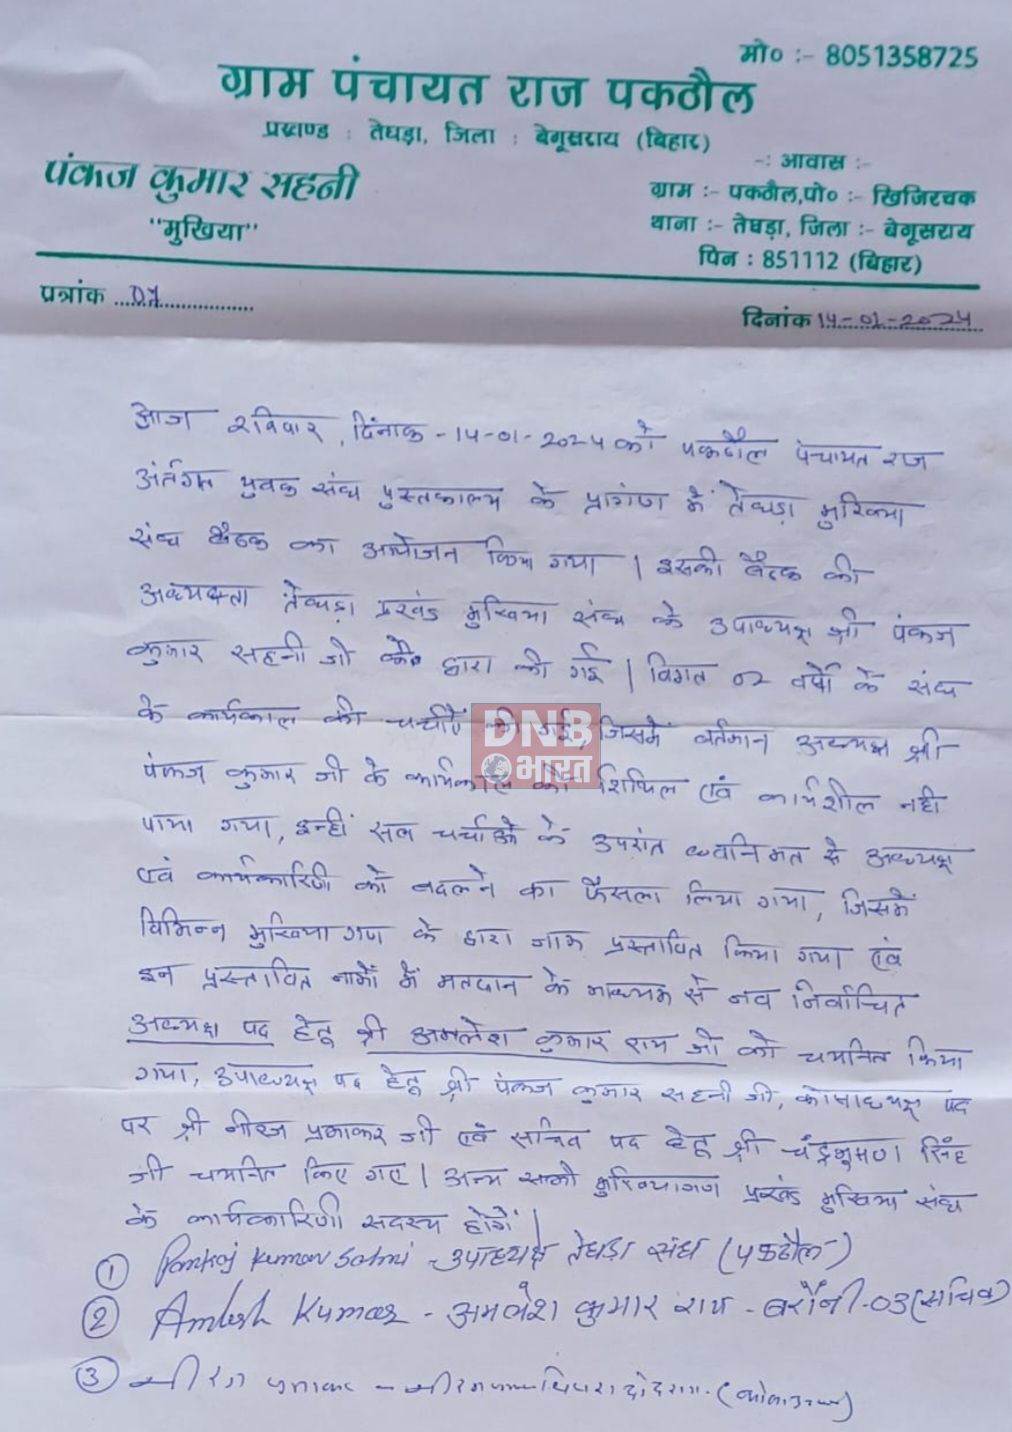 मो० :- 8051358725
ग्राम पंचायत राज पकठौल
प्रखण्ड : तेघड़ा, जिला : बेगूसराय (बिहार)
-: आवास :-
पंकज कुमार सहनी
ग्राम :- पकठौल,पो० :- खिजिरचक
"मुखिया"
थाना :- तेघड़ा, जिला :- बेगूसराय
पिन : 851112 (बिहार)
प्रत्रांक
दिनांक 14-01-2024
आज रविवार, दिंनाक -14-01-2024 को पकठौल पंचायत राज
अंर्तगत युवक संघ पुस्तकालय के प्रागंण में तेघड़ा मुखिया
संघ बैठक का आयोजन किया गया | इसकी बैठक की
अध्यक्षता तेघड़ा प्रखंड मुखिया संघ के उपाध्यक्ष श्री पंकज
कुमार सहनी जी के द्वारा की गई | विगत 02 वर्षों के संघ
के कार्यकाल की चर्चाएँ की गई, जिसमें वर्तमान अध्यक्ष श्री
पंकज कुमार जी के कार्यकाल को शिथिल एवं कार्यशील नही
DNB
भारत
पाया गया, इन्हीं सब चर्चाओं के उपरांत ध्वनिमत से अध्यक्ष
एवं कार्यकारिणी को बदलने का फैसला लिया गया, जिसमें
विभिन्न मुखिया गण के द्वारा नाम प्रस्तावित किया गया एवं
इन प्रस्तावित नामों में मतदान के माध्यम से नव निर्वाचित
अध्यक्ष पद हेतू श्री अमलेश कुमार राय जी को चयनित किया
गया, उपाध्यक्ष पद हेतू श्री पंकज कुमार सहनी जी, कोषाध्यक्ष पद
पर श्री नीरज प्रभाकर जी एवं सचिव पद हेतू श्री चंद्रभुषण सिंह
जी चयनित किए गए | अन्य सभी मुखियागण प्रखंड मुखिया संघ
के कार्यकारिणी सदस्य होगें |
① Pankaj Kumar Sahni - उपाध्यक्ष तेघड़ा संघ (पकठौल)
② Amlesh Kumar - अमलेश कुमार राय - बरौनी-03 (सचिव)
③